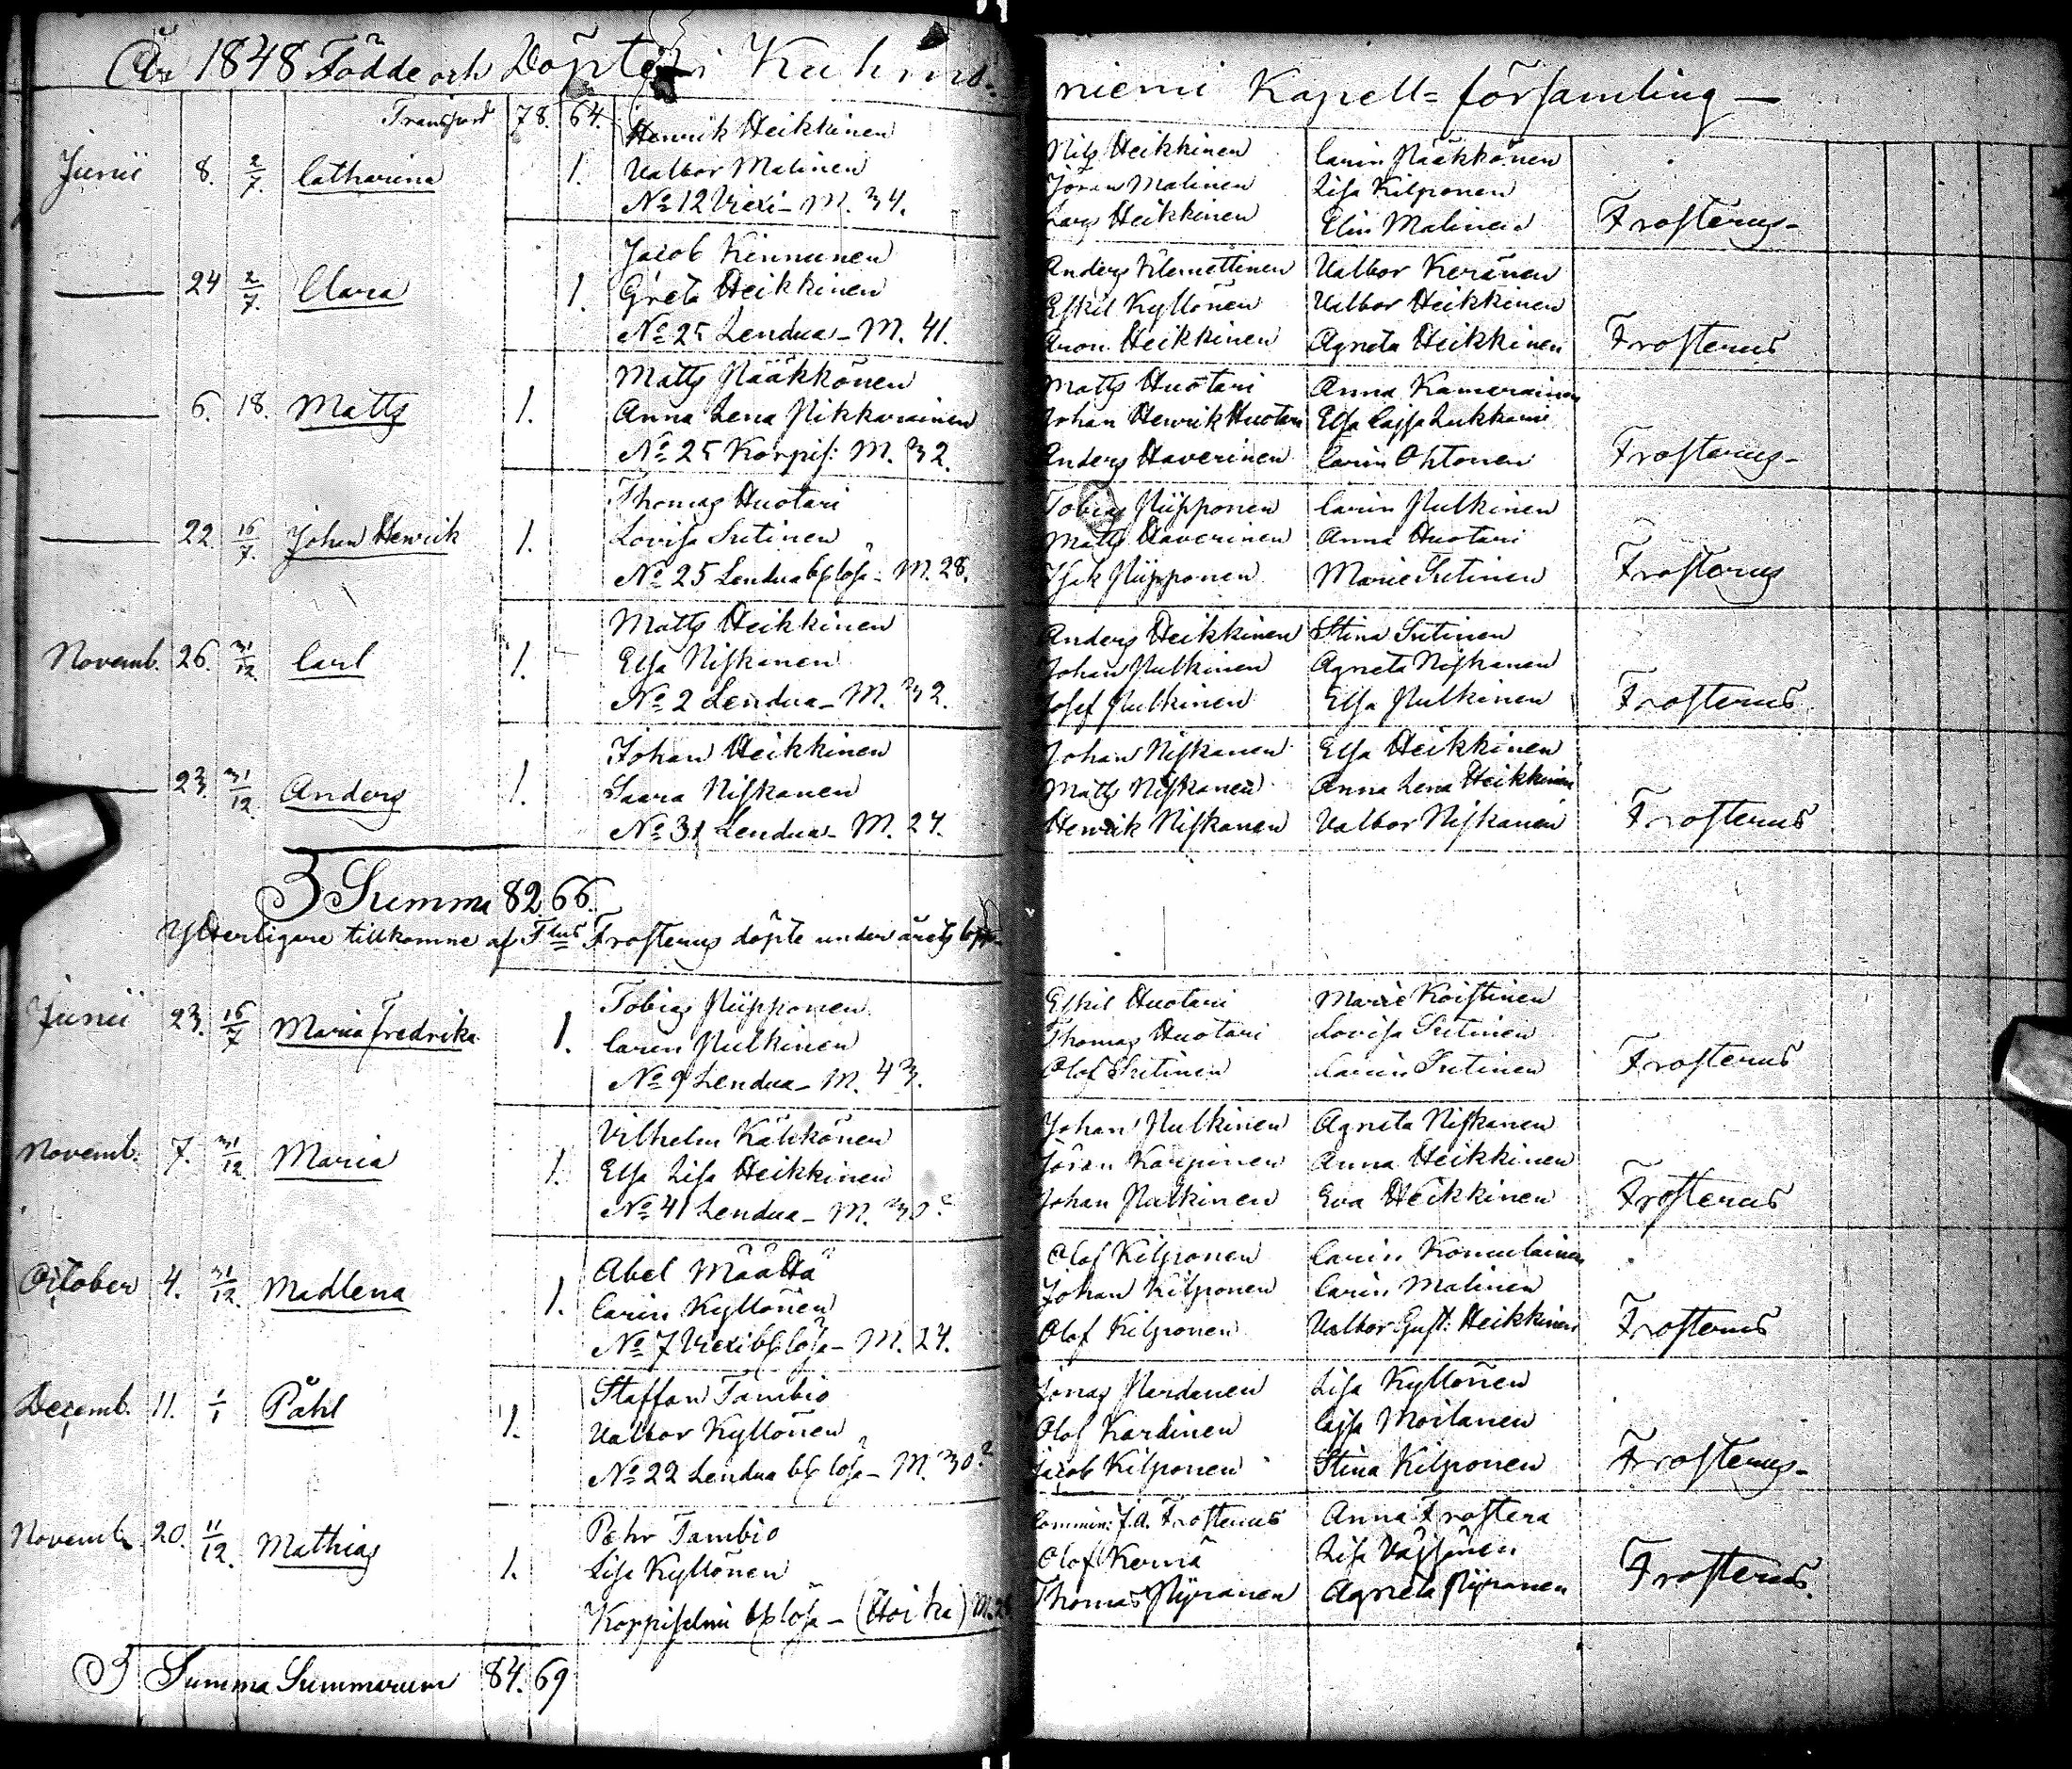 År 1848 Födde och Döpte i Kuhmo-
niemi Kapell-församling —
Transport 78. 64.
Henrik Heikkinen Nils Heikkinen Carin Pääkkönen
Junii 8. 2/7. Catharina 1. Valbor Malinen Jöran Malinen Lisa Kilponen
No 12 Viexi - M. 34. Lars Heikkinen Elin Malinen Frosterus-
Jacob Kinnunen Anders Klemettinen Valbor Keränen
— 24 2/7. Clara 1. Greta Heikkinen Eskil Kyllönen Valbor Heikkinen
No 25 Lendua - M. 41. Aron Heikkinen Agneta Heikkinen Frosterus
Matts Pääkkönen Matts Huotari Anna Kamerainen
— 6. 18. Matts 1. Anna Lena Pikkarainen Johan Henrik Huotari Elsa Cajsa
No 25 Korpis: M. 32. Anders Haverinen Carin Ohtonen Frosterus-
Thomas Huotari Tobias Piipponen Carin Pulkinen
— 22. 16/7. Johan Henrik 1. Lovisa Sutinen Matts Haverinen Anna Huotari
No 25 Lendua bflösa - M. 28. Isak Piipponen Marie Sutinen Frosterus
Matts Heikkinen Anders Heikkinen Stina Sutinen
Novemb. 26. 31/12. Carl 1. Elsa Niskanen Johan Pulkinen Agneta Niskanen
No 2 Lendua - M. 32. Josef Pulkinen Elsa Pulkinen Frosterus
Johan Heikkinen Johan Niskanen Elsa Heikkinen
— 23. 31/12. Anders 1. Saara Niskanen Matts Niskanen Anna Lena Heikkinen
No 31 Lendua - M. 27. Henrik Niskanen Valbor Niskanen Frosterus
Summa 82 66.
Ytterligare tillkomne af Frosterus döpte under årets lopp
Tobias Piipponen Eskil Huotari Marie Koistinen
Junii 23. 16/7 Maria Fredrika 1. Caren Pulkinen Thomas Huotari Lovisa Sutinen
No 9 Lendua - M. 43. Olof Sutinen Carin Sutinen Frosterus
Vilhelm Käkkönen Johan Pulkinen Agneta Niskanen
Novemb. 7. 31/12. Maria 1. Elsa Lisa Heikkinen Jöran Karppinen Anna Heikkinen
No 41 Lendua - M. 30 Johan Pulkinen Eva Heikkinen Frosterus
Abel Määttä Olof Kilponen Carin Komulainen
October 4. 31/12. Madlena 1. Carin Kyllönen Johan Kilponen Carin Malinen
No 7 Viexi bflösa - M. 24. Olof Kilponen Valbor Gust: Heikkinen Frosterus
Staffan Tambio Jonas Pardanen Lisa Kyllönen
Decemb. 11. 1/1 Påhl 1. Valbor Kyllönen Olof Kardinen Cajsa Moilanen
No 22 Lendua bflösa - M. 30 Jacob Kilponen Stina Kilponen Frosterus-
Pehr Tambio Commin: J.A. Frosterus Anna Frostera
Novemb. 20. 11/12. Mathias 1. Lisa Kyllönen Olof Kemä Lisa Väisänen
bflösa - (Hoikka) Thomas Pyranen Agneta Frosterus
Summa Summarum 84. 69